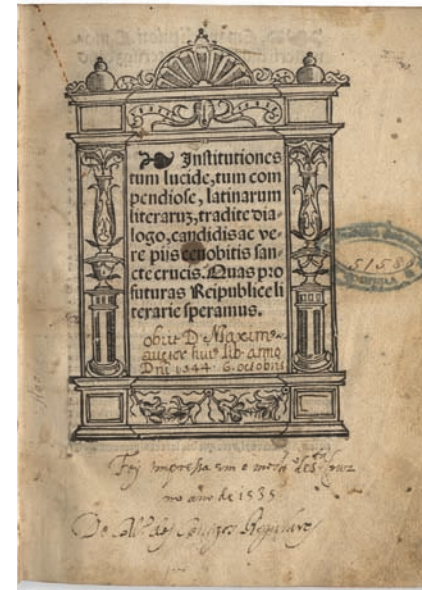 Institutiones
tum lucide, tum com
pendiose, latinarum
literarum, tradite dia-
logo, candidis ac ve-
re piis cenobitis san-
cte crucis. Quas pro
futuras Reipublice li
terarie speramus.
obiit D. Maximus
auctor huius lib. anno
Dni 1544 6. octobris
51580
Foy impressa em o de Cruz
no año de 1535
Do de Conigos Regulares